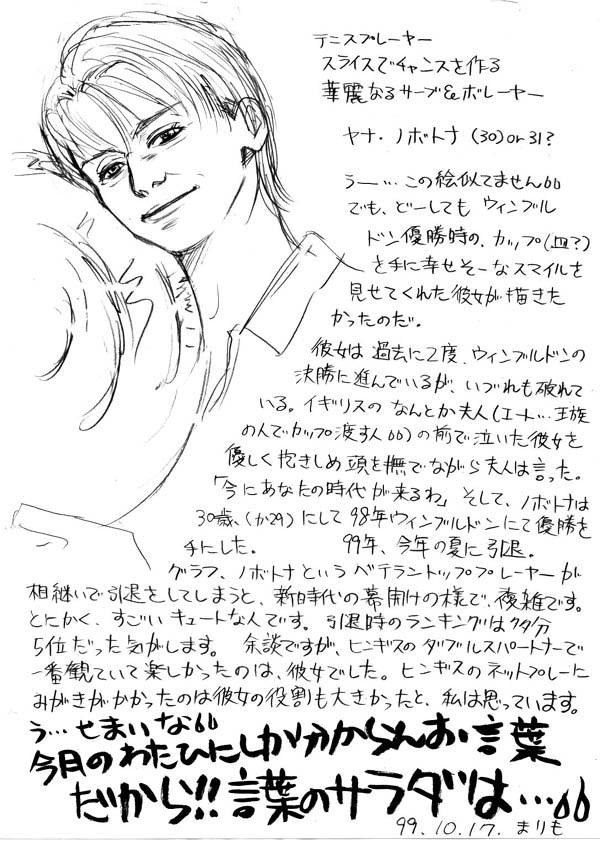 テニスプレーヤー
スライスでチャンスを作る
華麗なるサーブ&ボレーヤー
ヤナ・ノボトナ (30) or 31?
うー…この絵似てません66
でも、どーしても ウィンブル
ドン優勝時の、カップ(皿?)
を手に幸せそーなスマイルを
見せてくれた彼女が描きた
かったのだ。
彼女は過去に2度、ウィンブルドンの
決勝に進んでいるが、いづれも破れて
いる。イギリスの なんとか夫人(エート…王族
の人でカップ渡す人66)の前で泣いた彼女を
優しく抱きしめ頭を撫でながら夫人は言った。
「今にあなたの時代が来るわ」そして、ノボトナは
30歳、(か29)にして98年ウィンブルドンにて優勝を
手にした。 99年、今年の夏に引退。
グラフ、ノボトナという ベテラントッププレーヤーが
相継いで引退をしてしまうと、新時代の幕開けの様で、複雑です。
とにかく、すごいキュートな人です。引退時のランキングは多分
5位だった気がします。 余談ですが、ヒンギスのダブルスパートナーで
一番観ていて楽しかったのは、彼女でした。ヒンギスのネットプレーに
みがきがかかったのは彼女の役割も大きかったと、私は思っています。
う…せまいな66
今月のわたひにしか分からんお言葉
だから!!言葉のサラダは…66
99.10.17. まりも